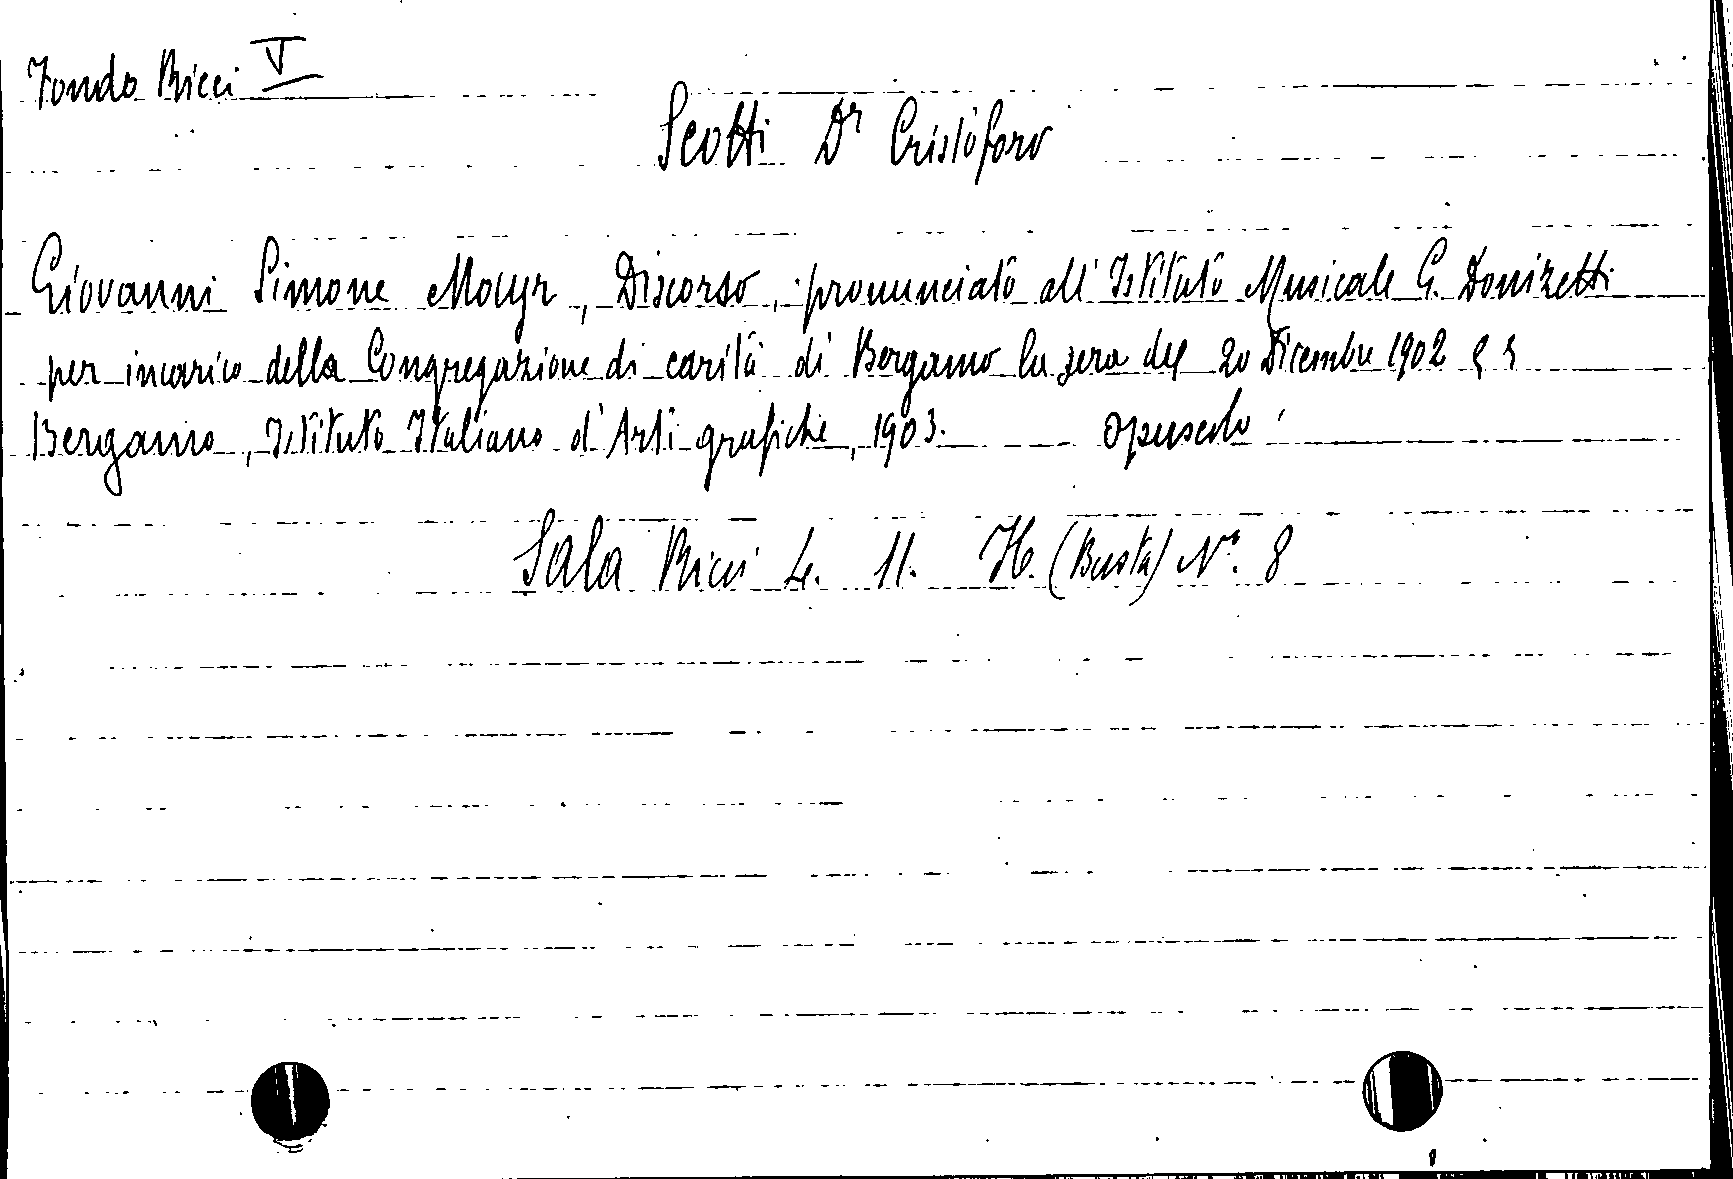 Fondo Ricci V
Scotti Dr Cristoforo
Giovanni Simone Mayr, Discorso, pronunciato all'Istituto Musicale G. Donizetti
per incarico della Congregazione di carità di Bergamo la sera del 20 Dicembre 1902
Bergamo, Istituto Italiano d'Arti grafiche, 1903. opuscolo
Sala Ricci L. 11. H. (Busta) N°. 8